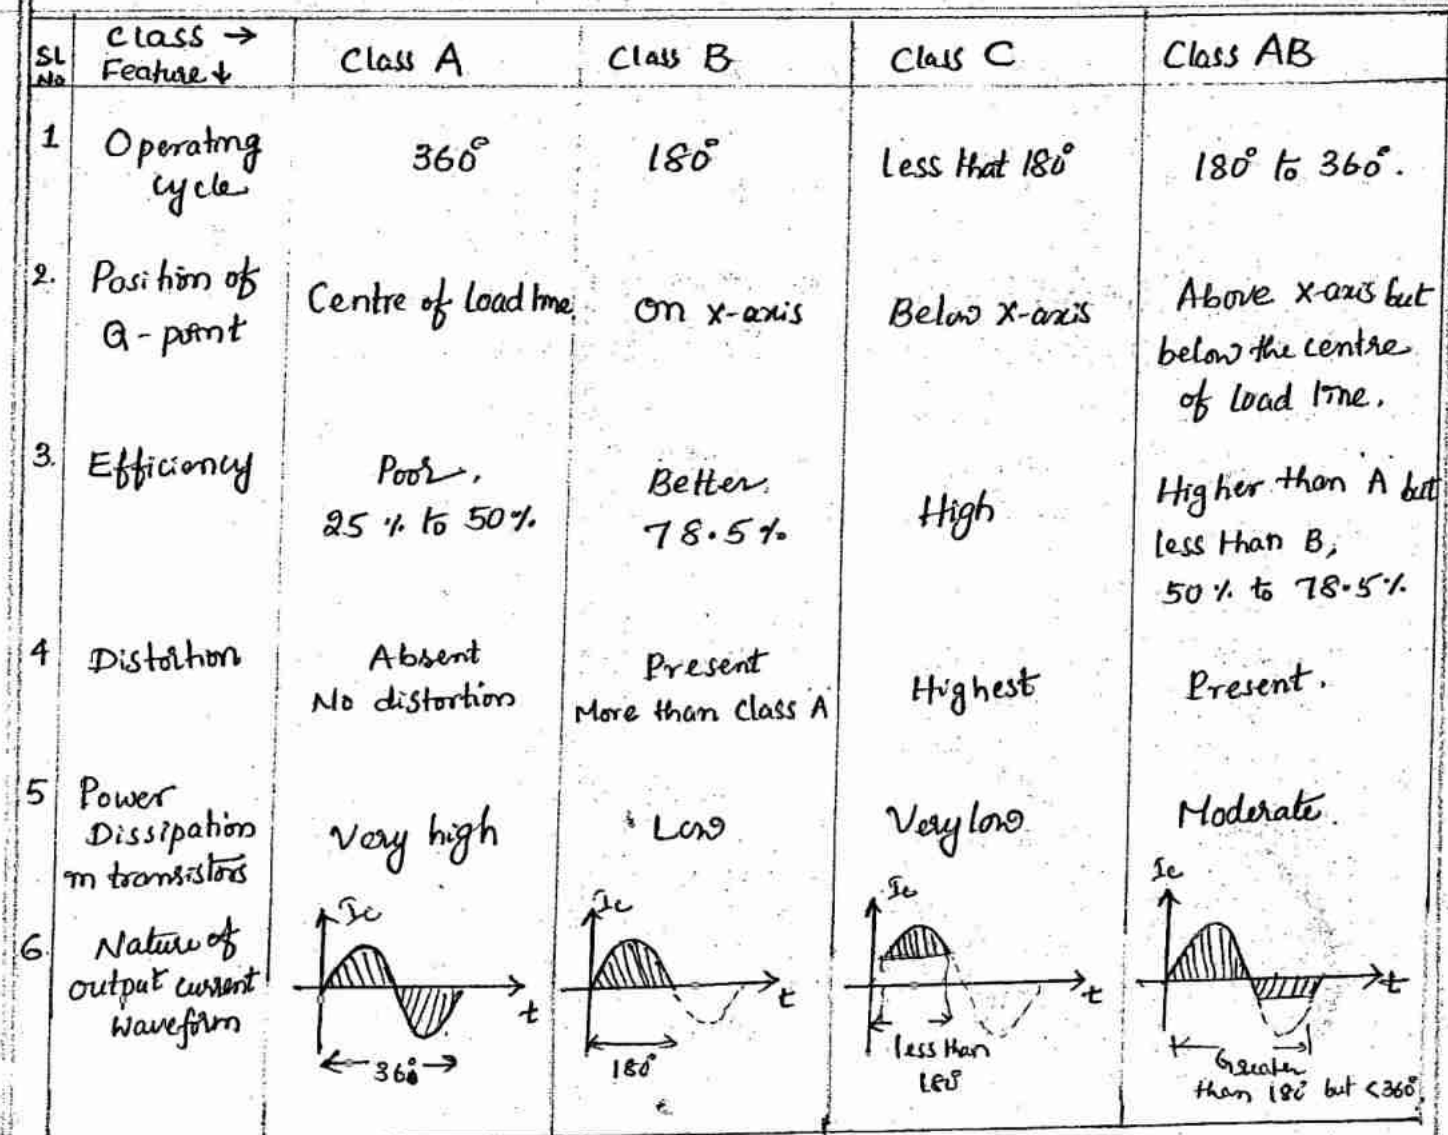 SL No
Class →
Feature ↓
Class A
Class B
Class C
Class AB
1
Operating
cycle
360°
180°
less that 180°
180° to 360°.
2.
Position of
Q-point
Centre of load line
on x-axis
Below x-axis
Above x-axis but
below the centre
of load line.
3.
Efficiency
Poor.
25 % to 50%
Better
78.5%
High
Higher than A but
less than B,
50 % to 78.5%
4
Distortion
Absent
No distortion
Present
More than class A
Highest
Present.
5
Power
Dissipation
in transistors
Very high
Low
Very low
Moderate.
6.
Nature of
output current
waveform
Ic
t
360°
Ic
t
180°
Ic
t
less than
180°
Ic
t
Greater
than 180° but <360°